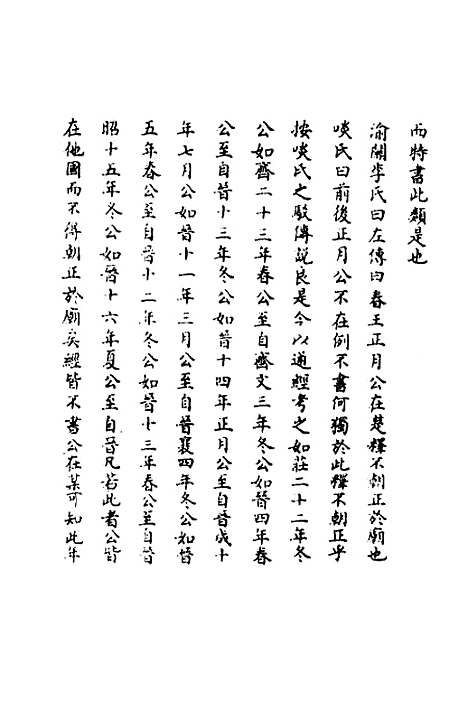 而特書此類是也
渝關李氏曰左傳曰春王正月公在楚釋不朝正於廟也
啖氏曰前後正月公不在例不書何獨於此釋不朝正乎
按啖氏之駁傳說良是今以通經考之如莊二十二年冬
公如齊二十三年春公至自齊文三年冬公如晉四年春
公至自晉十三年冬公如晉十四年正月公至自晉成十
年七月公如晉十一年三月公至自晉襄四年冬公如晉
五年春公至自晉十二年冬公如晉十三年春公至自晉
昭十五年冬公如晉十六年夏公至自晉凡若此者公皆
在他國而不得朝正於廟矣經皆不書公在某可知此年